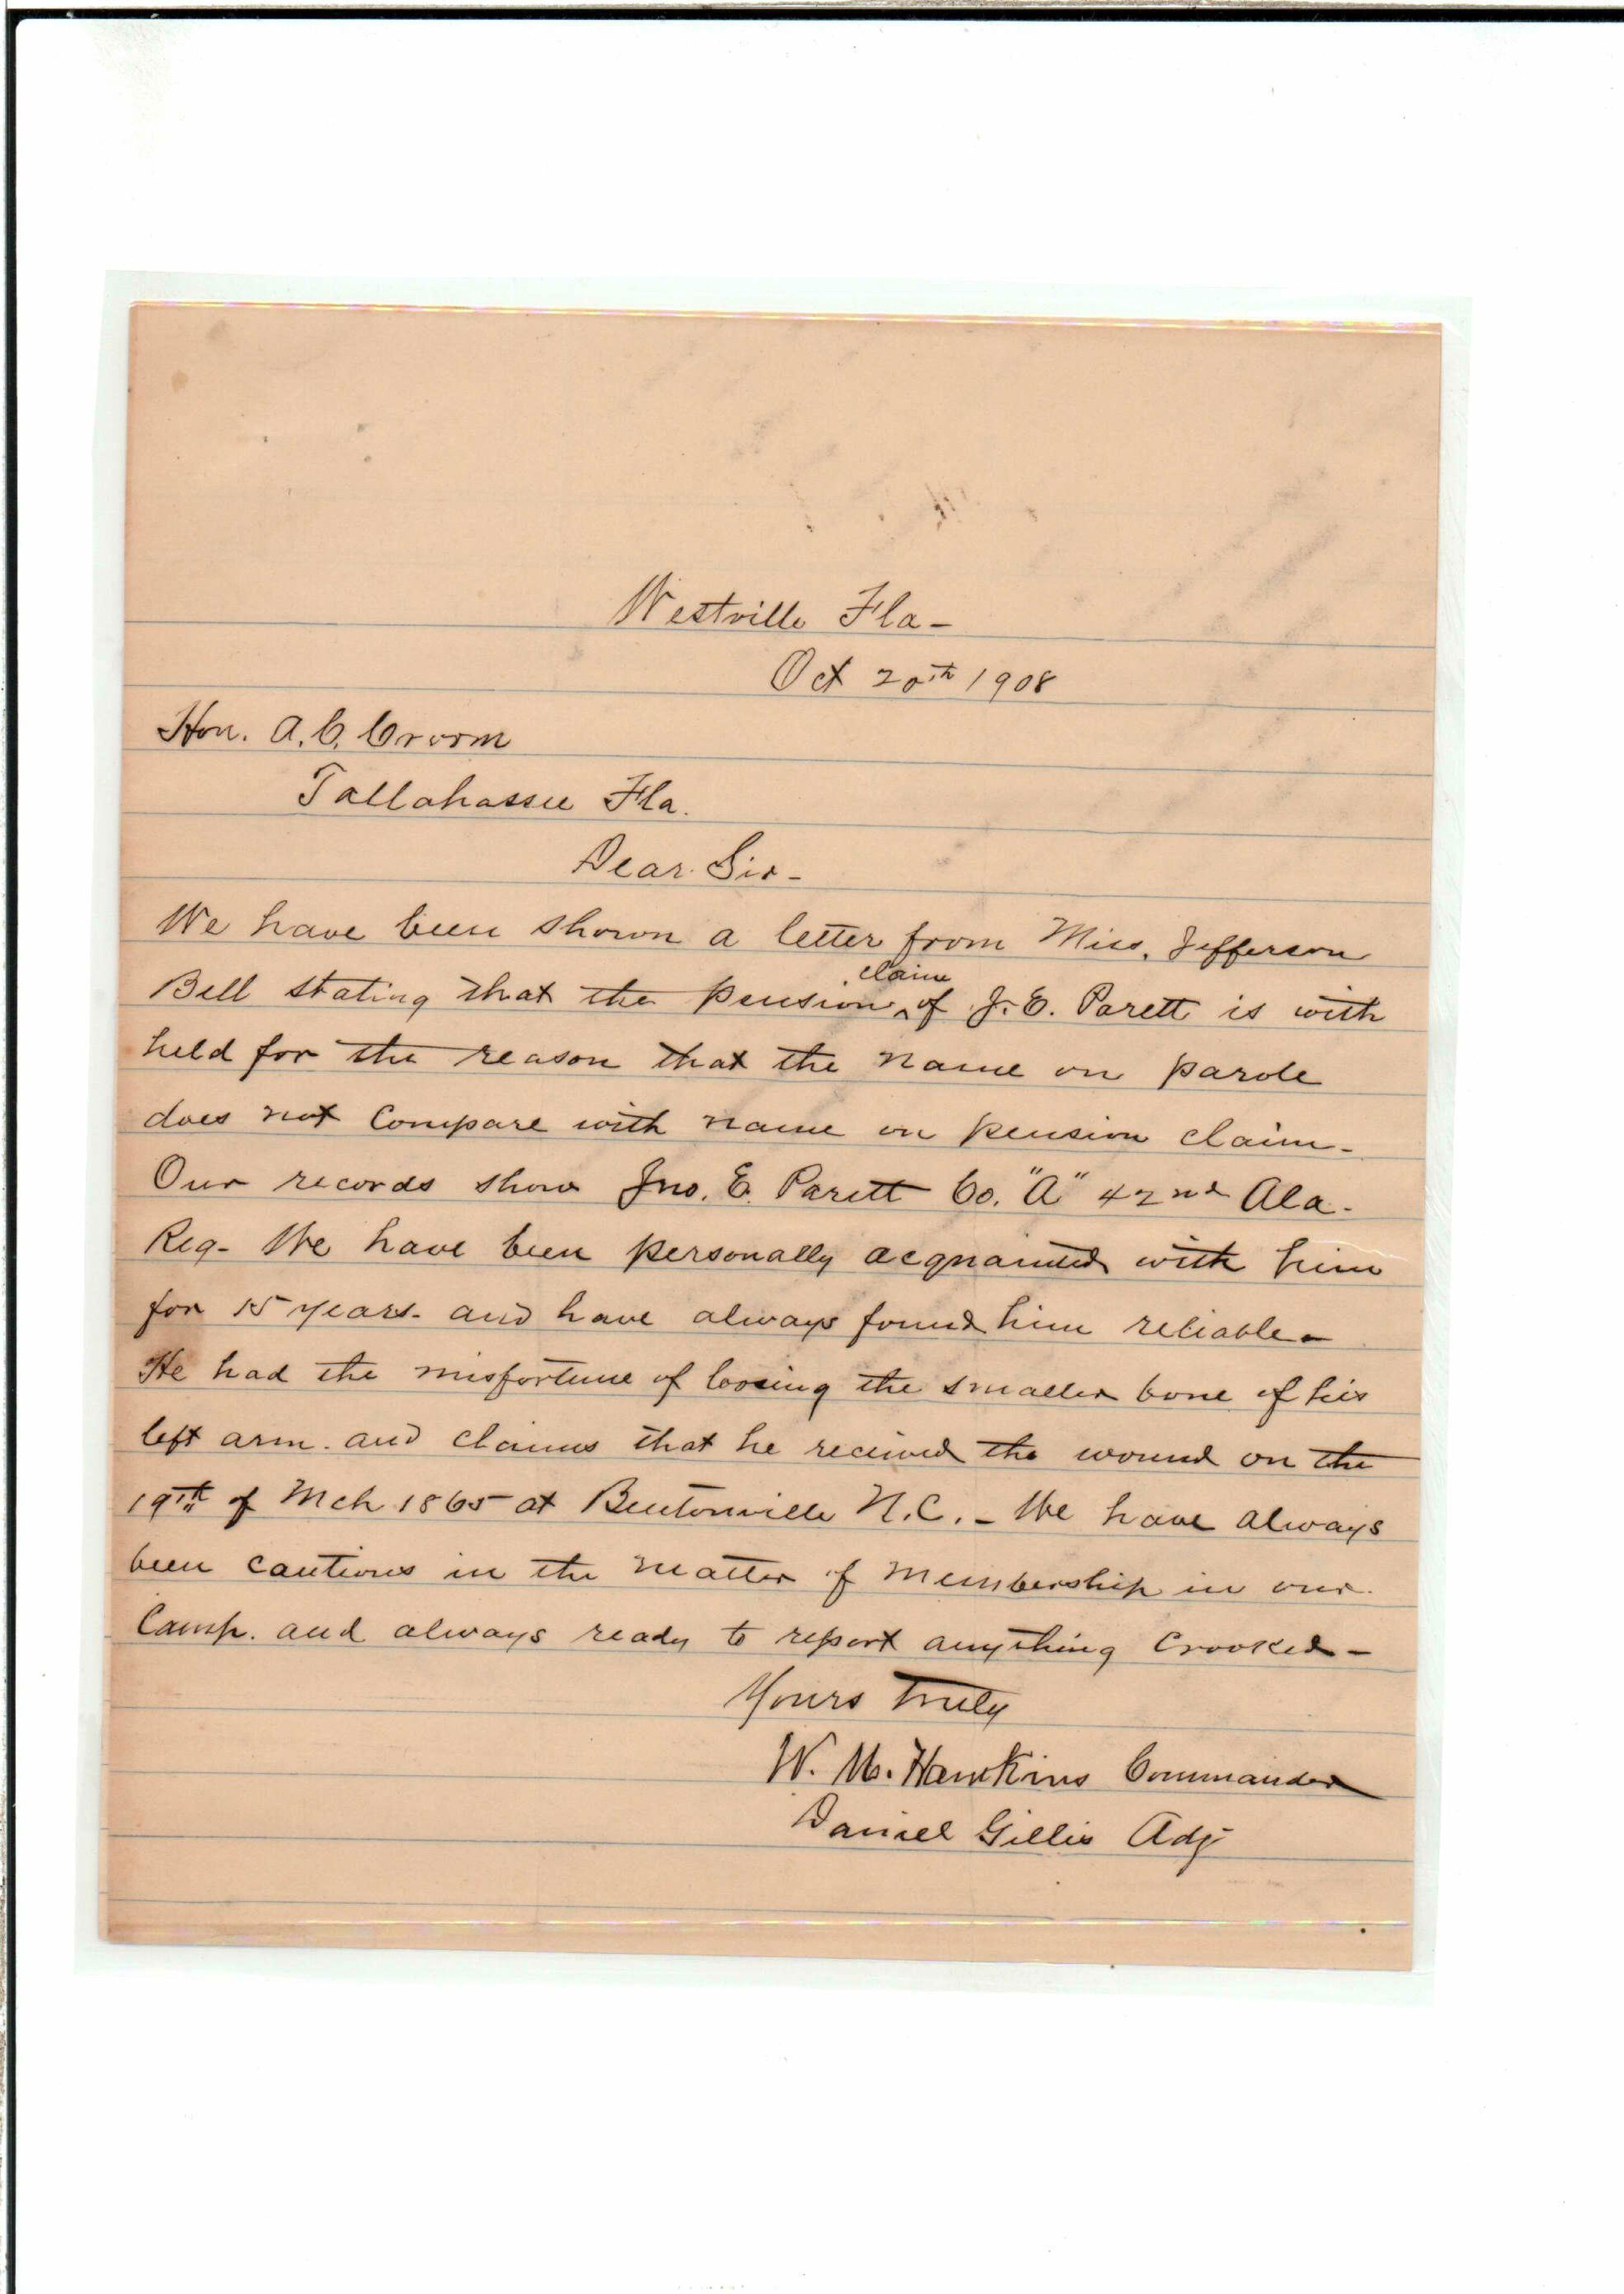 Westville Fla-
Oct 20th 1908
Hon. A. C. Croom
Tallahassee Fla.
Dear Sir-
We have been shown a letter from Miss. Jefferson
Bell stating that the pension claim of J. E. Parett is with
held for the reason that the name on parole
does not Compare with name on pension claim-
Our records show Jno. E. Parett Co. "A" 42nd Ala-
Reg- We have been personally acquainted with him
for 15 years- and have always found him reliable-
He had the misfortune of loosing the smaller bone of his
left arm. and claims that he received the wound on the
19th of Mch 1865 at Bentonville N.C.- We have always
been cautious in the matter of membership in our
Camp. and always ready to report anything Crooked-
Yours truly
W. M. Hawkins Commander
Daniel Gillis Adj